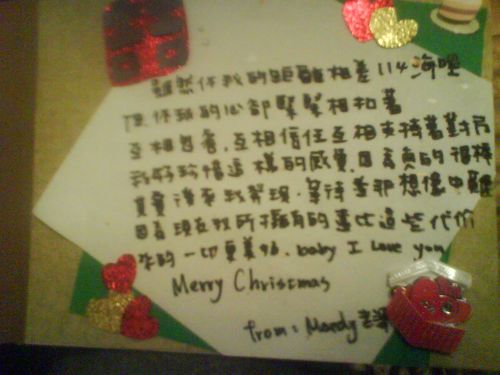 雖然你我的距離相差114海哩
但你我的心卻緊緊相扣著
互相包容,互相信任互相支持著對方
我好珍惜這樣的感覺,因為真的很棒
其實後來我發現,等待並那想像中難
因為現在我所擁有的 比這些代价
來的一切更美好.baby I love you
Merry Christmas
from: Mandy